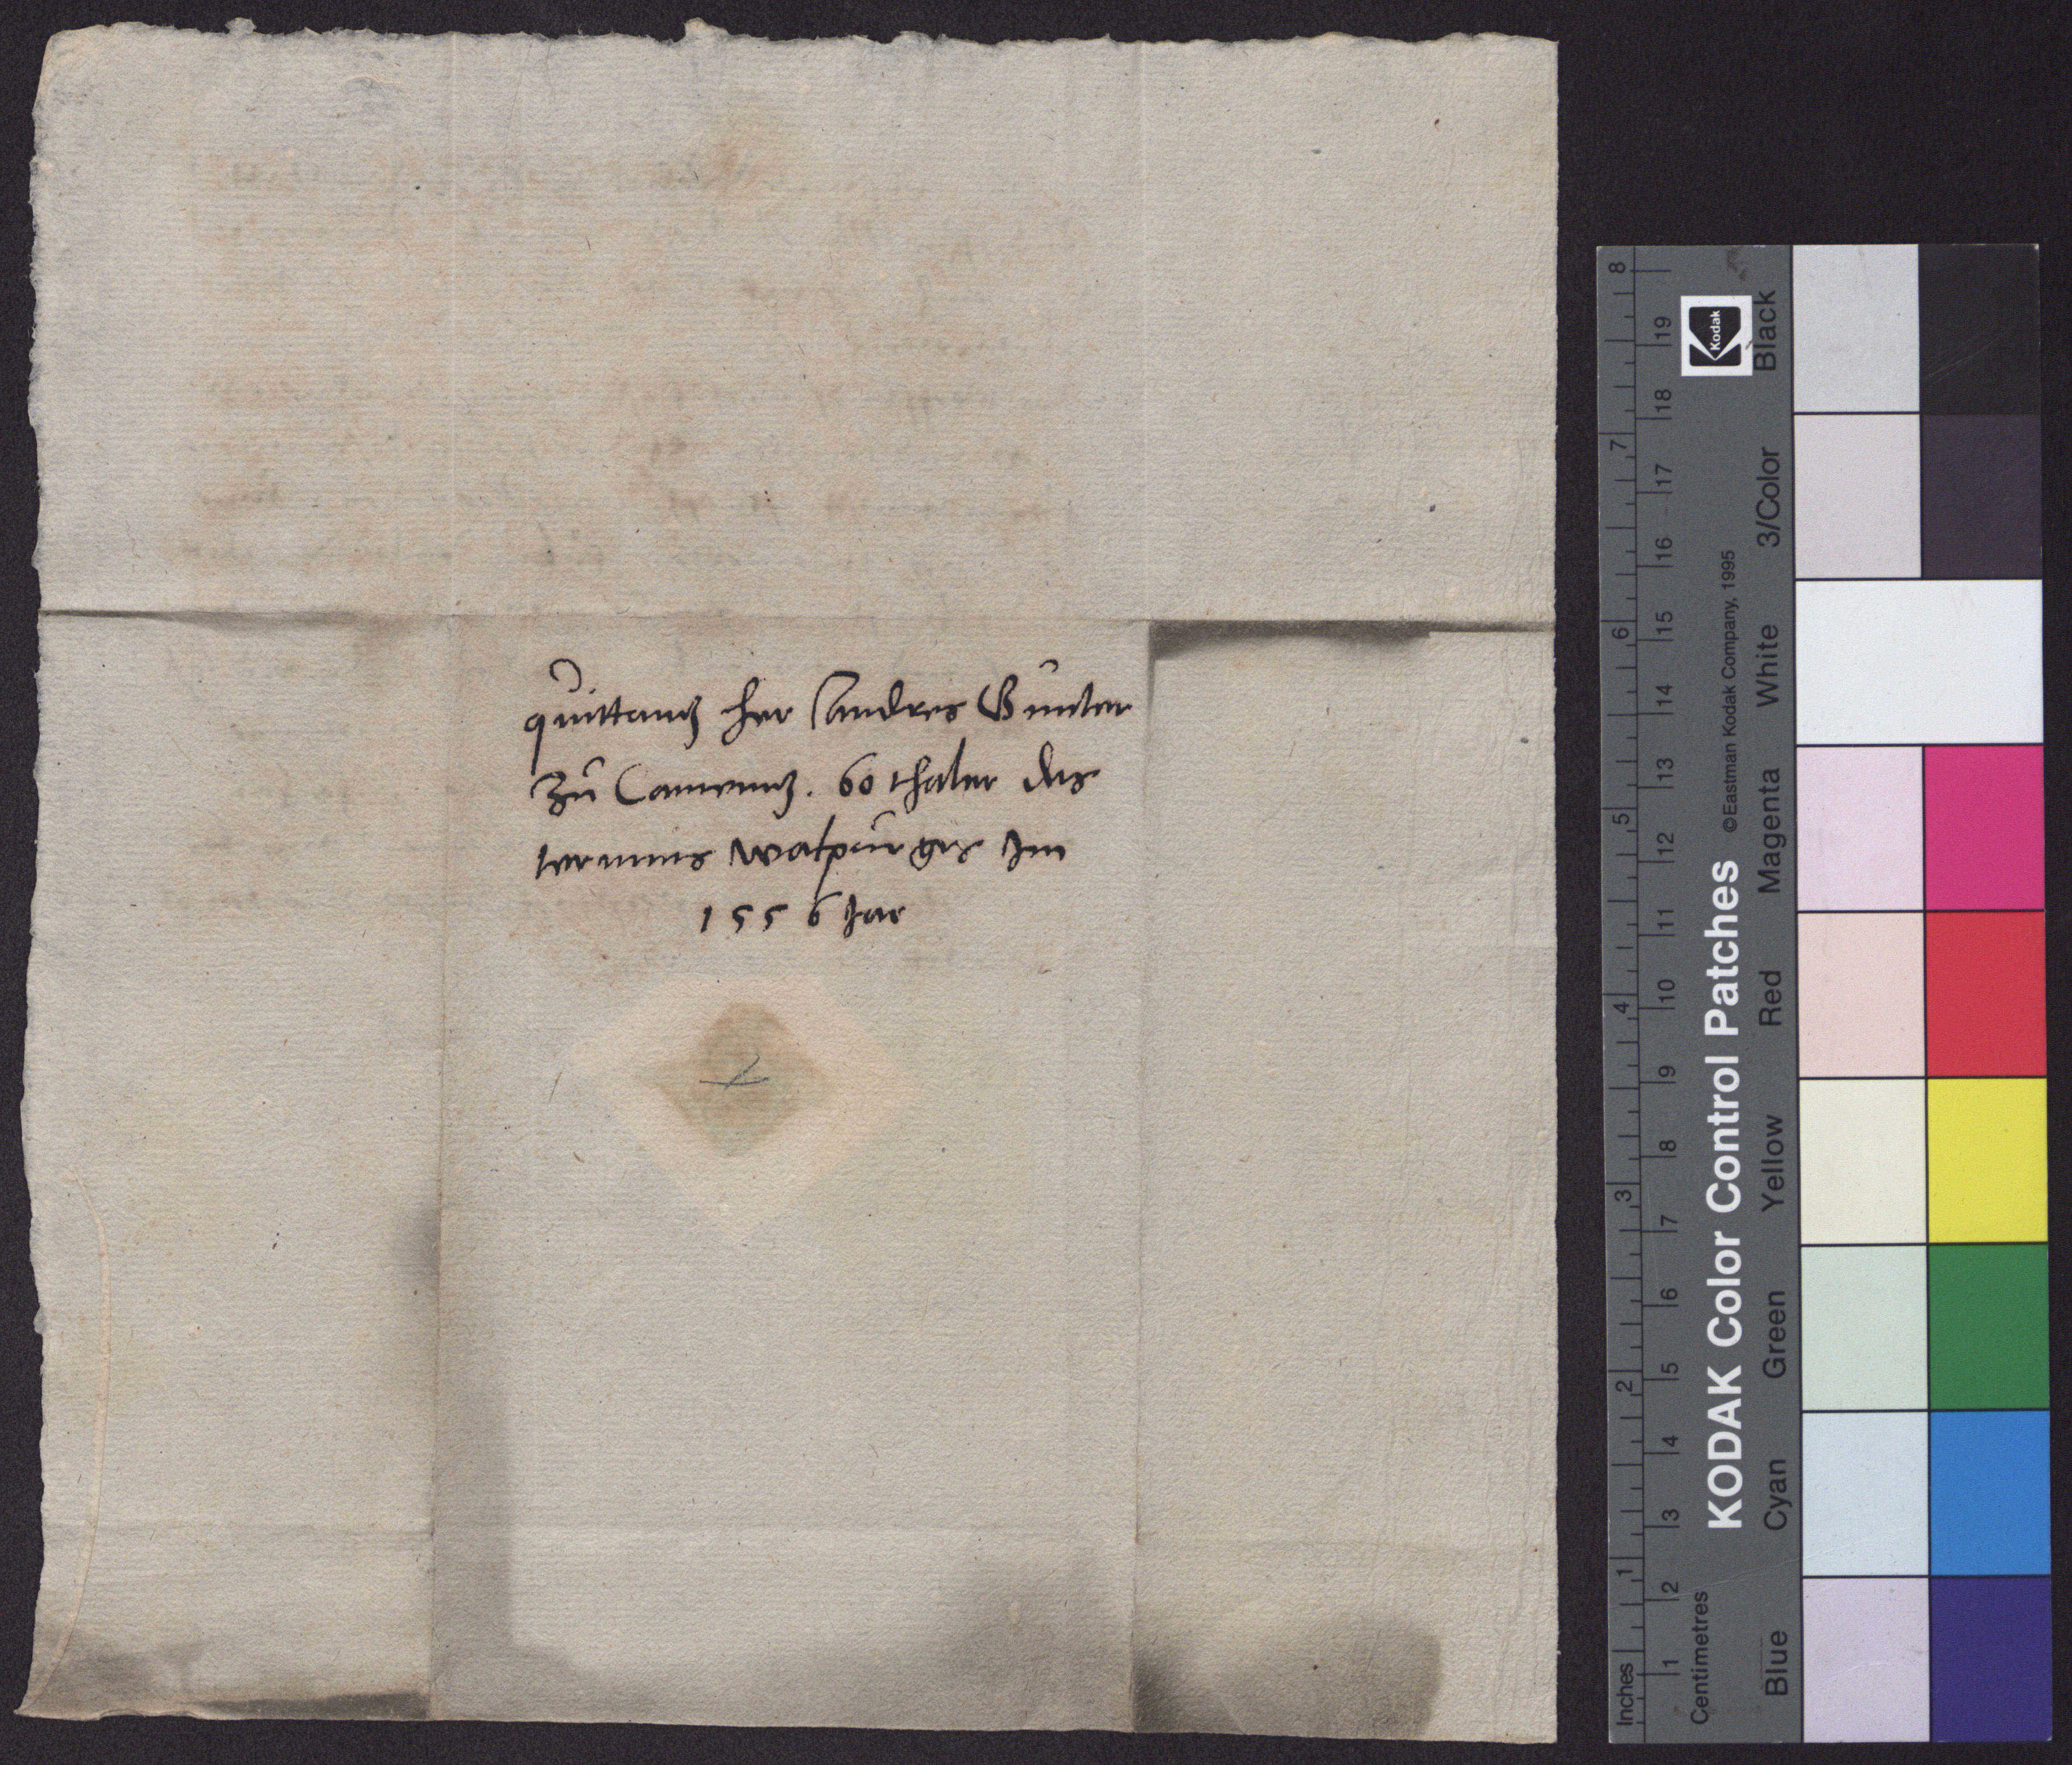 quittantz her Andres Günter
zu Camentz. 60 thaler des
termins walpurgis Im
1556 Jar
8
7
6
5
4
3
2
1
Inches
19
18
17
16
15
14
13
12
11
10
9
8
7
6
5
4
3
2
1
Centimetres
Kodak
KODAK Color Control Patches
©Eastman Kodak Company, 1995
Blue Cyan Green Yellow Red Magenta White 3/Color Black